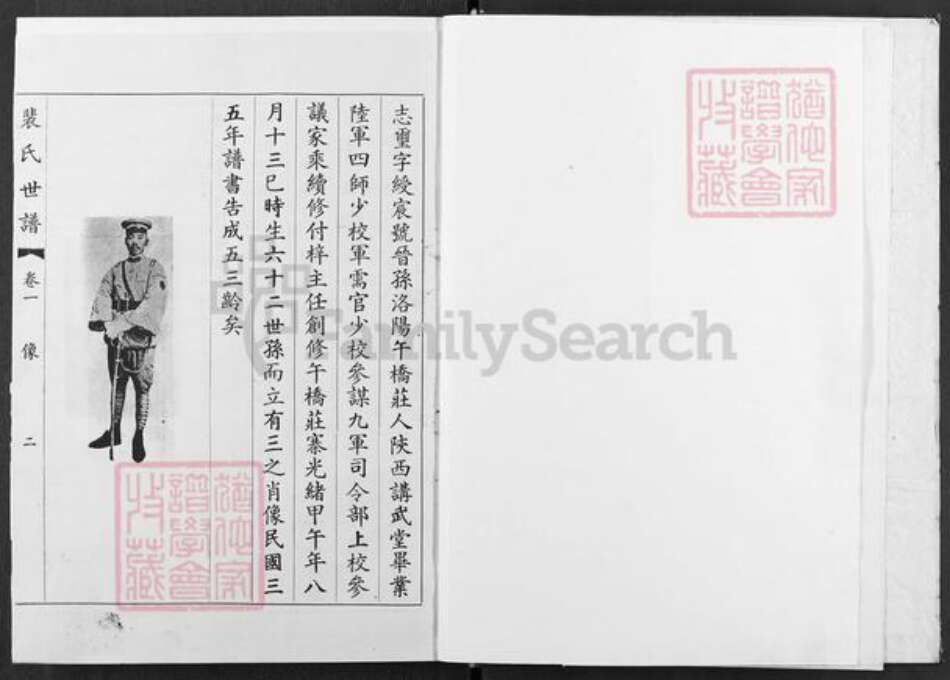 志璽字綬宸號晉孫洛陽午橋莊人陝西講武堂畢業
陸軍四師少校軍需官少校參謀九軍司令部上校參
議家乘續修付梓主任創修午橋莊寨光緒甲午年八
月十三巳時生六十二世孫而立有三之肖像民國三
五年譜書告成五三齡矣
裴氏世譜 卷一 像 二
猶他家
譜學會
收藏
猶他家
譜學會
收藏
FamilySearch